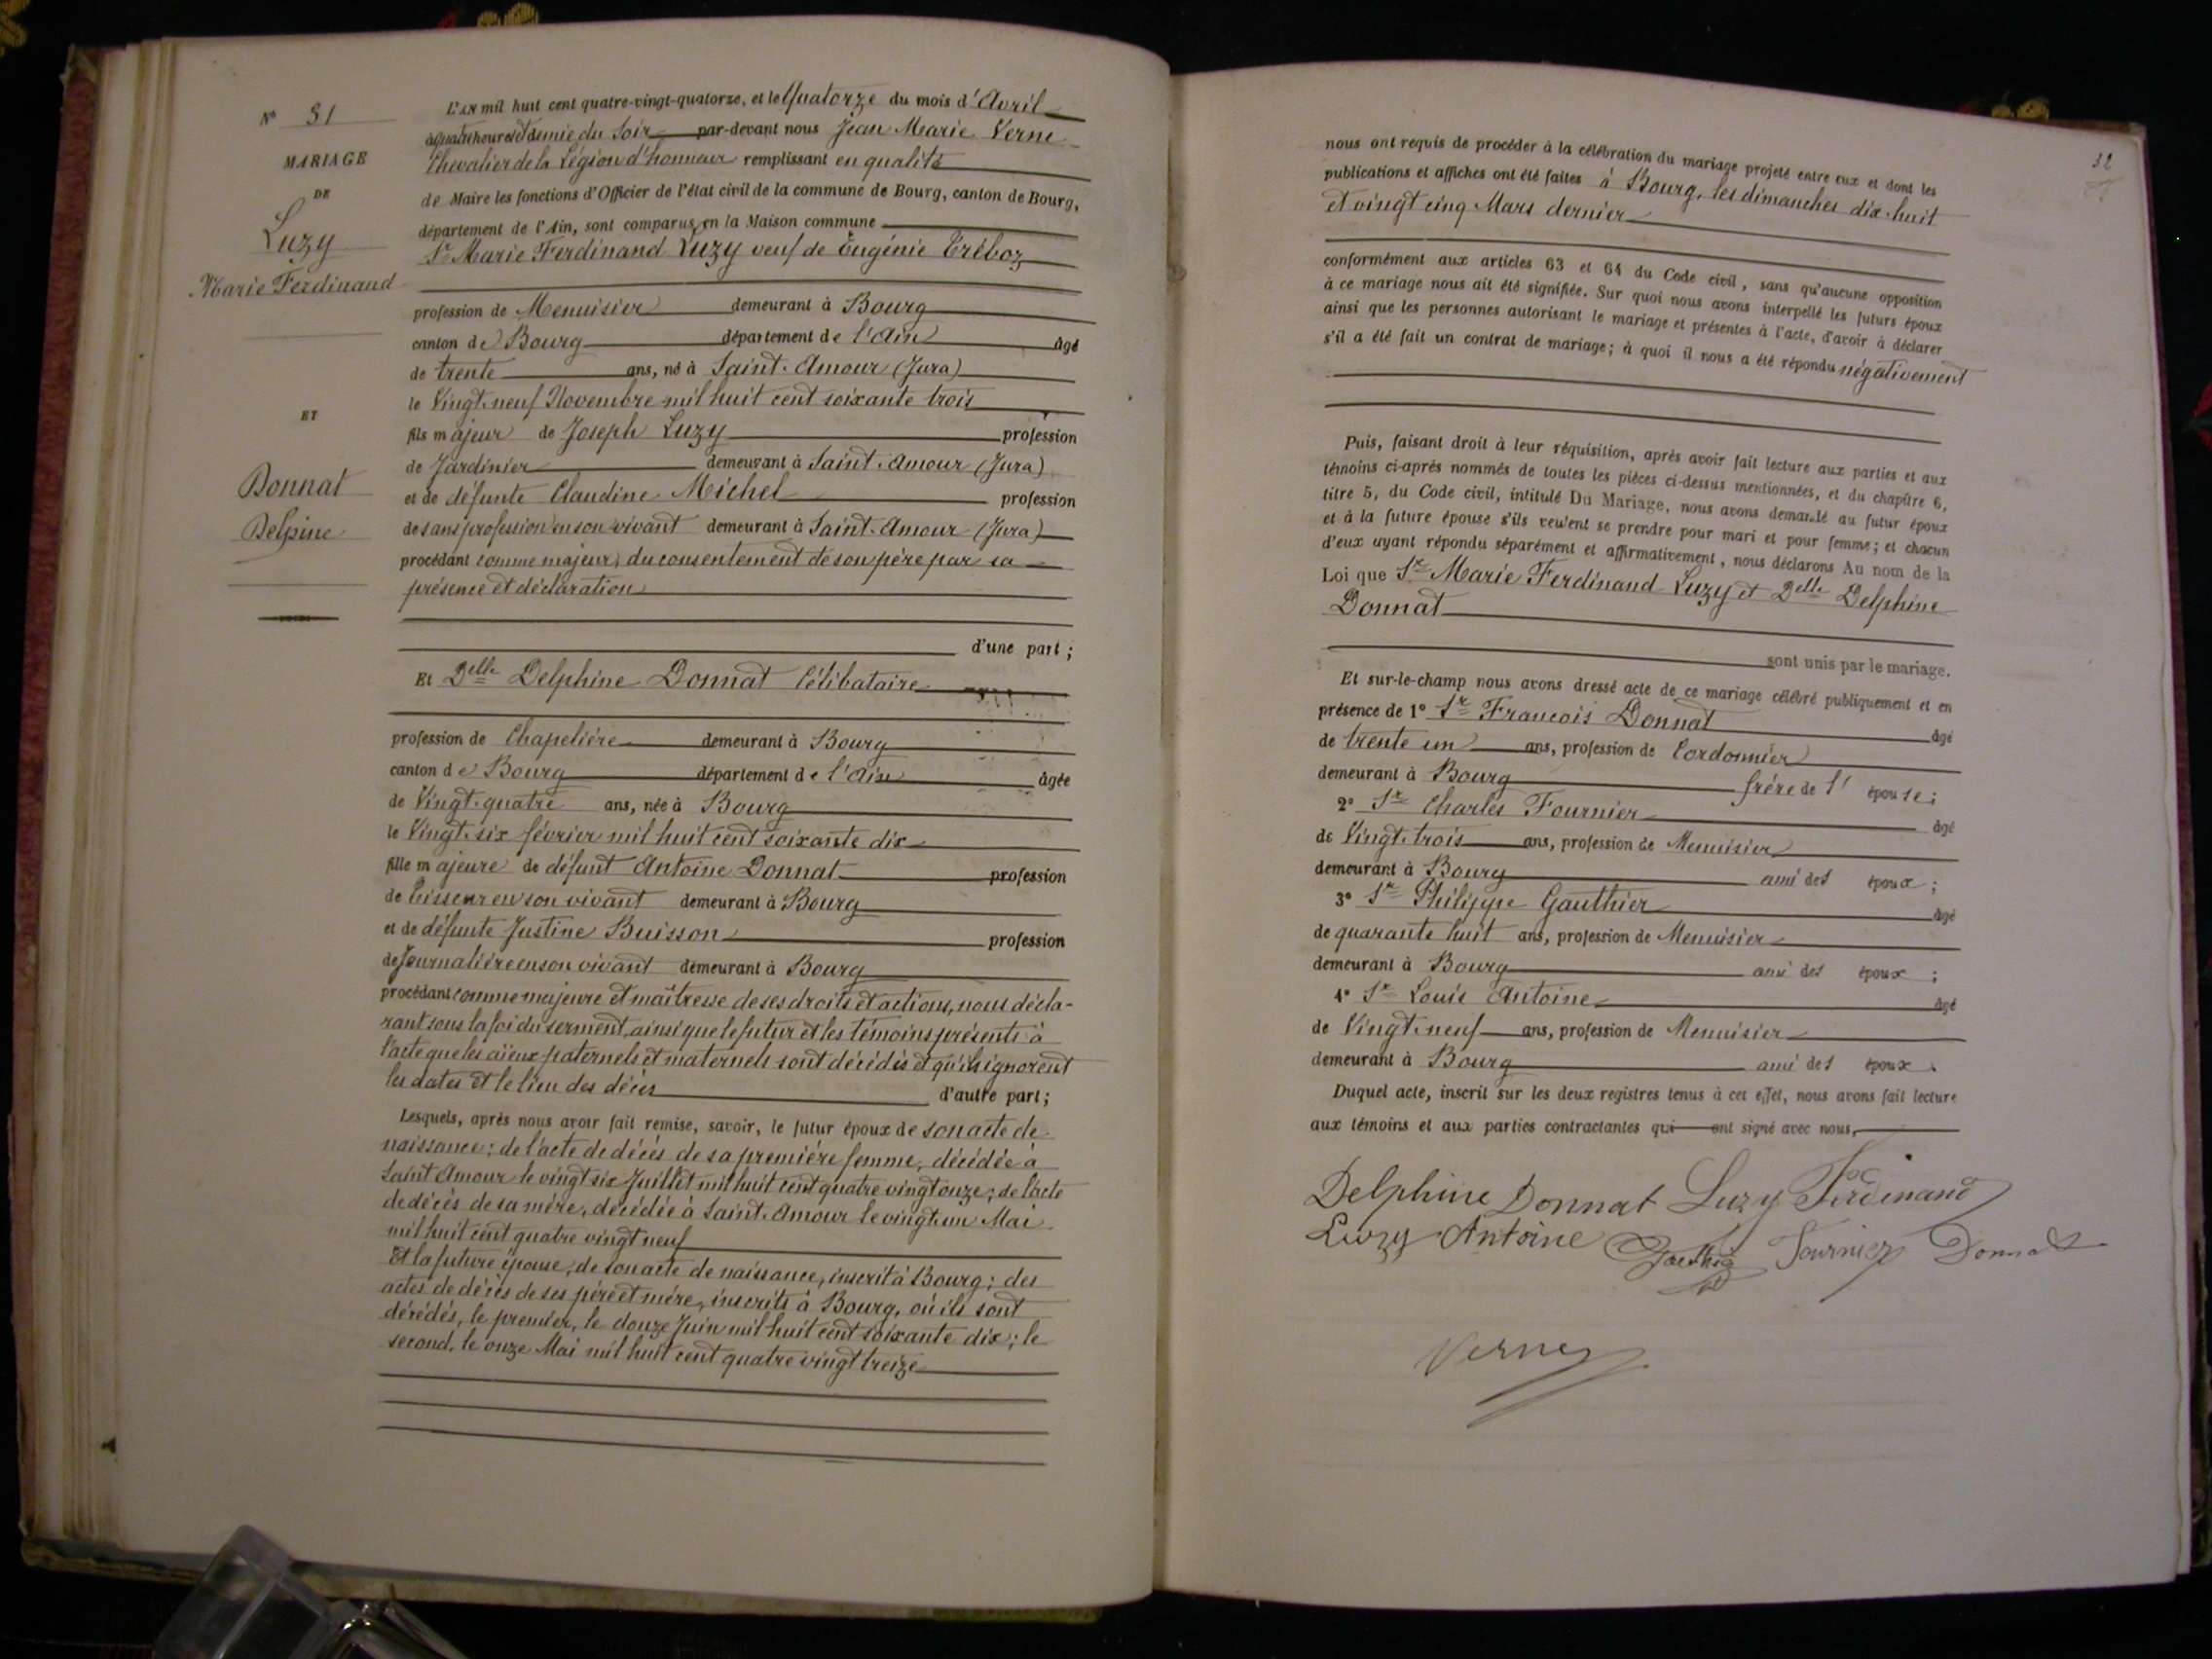 N° 31
MARIAGE
DE
Luzy
Marie Ferdinand
ET
Donnat
Delpine
L'AN mil huit cent quatre-vingt-quatorze, et le Quatorze du mois d'Avril
à quatre heures et demie du Soir par-devant nous Jean Marie Verne
Chevalier de la Légion d'honneur remplissant en qualité
de Maire les fonctions d'Officier de l'état civil de la commune de Bourg, canton de Bourg,
département de l'Ain, sont comparus en la Maison commune
Sr Marie Ferdinand Luzy veuf de Eugénie Tréboz
profession de Menuisier demeurant à Bourg
canton de Bourg département de l'Ain âgé
de trente ans, né à Saint-Amour (Jura)
le Vingt-neuf Novembre mil huit cent soixante trois
fils majeur de Joseph Luzy profession
de Jardinier demeurant à Saint-Amour (Jura)
et de défunte Claudine Michel profession
de sans profession en son vivant demeurant à Saint-Amour (Jura)
procédant comme majeur, du consentement de son père par sa
présence et déclaration
d'une part ;
Et Delle Delphine Donnat Célibataire
profession de Chapelière demeurant à Bourg
canton de Bourg département de l'Ain âgée
de Vingt-quatre ans, née à Bourg
le Vingt-six février mil huit cent soixante dix
fille majeure de défunt Antoine Donnat profession
de Tisseur en son vivant demeurant à Bourg
et de défunte Justine Buisson profession
de Journalière en son vivant demeurant à Bourg
procédant comme majeure et maîtresse de ses droits et actions, nous décla-
rant sous la foi du serment, ainsi que le futur et les témoins présents à
l'acte que les aïeux paternels et maternels sont décédés et qu'ils ignorent
les dates et le lieu des décès d'autre part ;
Lesquels, après nous avoir fait remise, savoir, le futur époux de son acte de
naissance ; de l'acte de décès de sa première femme, décédée à
Saint Amour le vingt six Juillet mil huit cent quatre vingt onze ; de l'acte
de décès de sa mère, décédée à Saint-Amour le vingt un Mai
mil huit cent quatre vingt neuf
Et la future épouse, de son acte de naissance, inscrit à Bourg ; des
actes de décès de ses père et mère, inscrits à Bourg, où ils sont
décédés, le premier, le douze Juin mil huit cent soixante dix ; le
second, le onze Mai mil huit cent quatre vingt treize
32
nous ont requis de procéder à la célébration du mariage projeté entre eux et dont les
publications et affiches ont été faites à Bourg, les dimanches dix-huit
et vingt cinq Mars dernier
conformément aux articles 63 et 64 du Code civil, sans qu'aucune opposition
à ce mariage nous ait été signifiée. Sur quoi nous avons interpellé les futurs époux
ainsi que les personnes autorisant le mariage et présentes à l'acte, d'avoir à déclarer
s'il a été fait un contrat de mariage ; à quoi il nous a été répondu négativement
Puis, faisant droit à leur réquisition, après avoir fait lecture aux parties et aux
témoins ci-après nommés de toutes les pièces ci-dessus mentionnées, et du chapitre 6,
titre 5, du Code civil, intitulé Du Mariage, nous avons demandé au futur époux
et à la future épouse s'ils veulent se prendre pour mari et pour femme ; et chacun
d'eux ayant répondu séparément et affirmativement, nous déclarons Au nom de la
Loi que Sr Marie Ferdinand Luzy et Delle Delphine
Donnat
sont unis par le mariage.
Et sur-le-champ nous avons dressé acte de ce mariage célébré publiquement et en
présence de 1° Sr François Donnat âgé
de trente un ans, profession de Cordonnier
demeurant à Bourg frère de l'épouse ;
2° Sr Charles Fournier âgé
de Vingt-trois ans, profession de Menuisier
demeurant à Bourg ami des époux ;
3° Sr Philippe Gauthier âgé
de quarante huit ans, profession de Menuisier
demeurant à Bourg ami des époux ;
4° Sr Louis Antoine âgé
de Vingt-neuf ans, profession de Menuisier
demeurant à Bourg ami des époux.
Duquel acte, inscrit sur les deux registres tenus à cet effet, nous avons fait lecture
aux témoins et aux parties contractantes qui ont signé avec nous.
Delphine Donnat Luzy Ferdinand
Luzy Antoine Gauthier Fournier Donnat
Verne